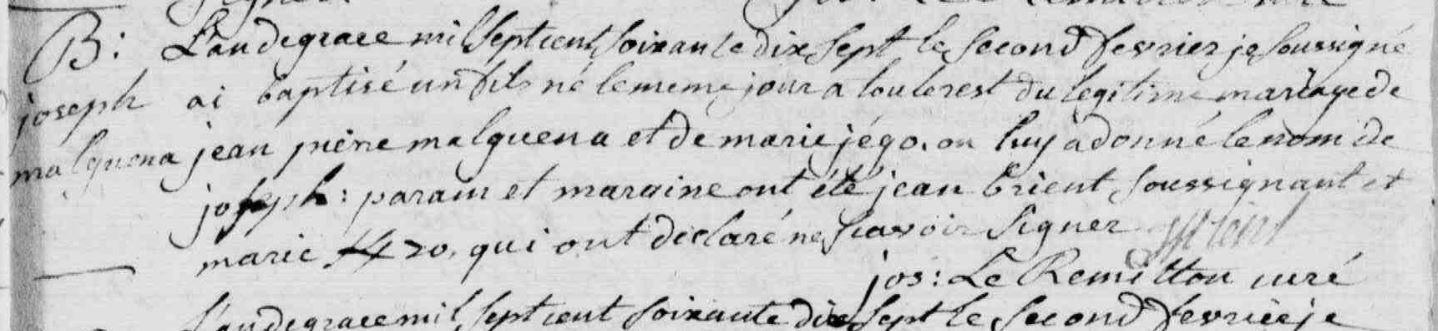 B: L'an de grace mil sept cent soixante dix sept le second fevrier je soussigné
joseph ai baptisé un fils né le meme jour a toulerest du legitime mariage de
malquena jean pierre malquena et de marie jégo. on luy a donné le nom de
joseph: parain et maraine ont été jean brient soussignant et
marie qui ont declaré ne scavoir signer
jos: Le curé
L'an de grace mil sept cent soixante dix sept le second fevrier je